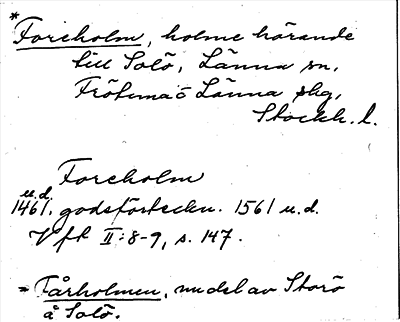 * Foreholm, holme hörande
till Solö, Länna sn,
Frötuna o Länna skg,
Stockh. l.
Foreholm
u.d.
1461. godsförteckn. 1561 u.d.
Vft II:8-9, s. 147.
= Fårholmen, nu del av Storö
å Solö.